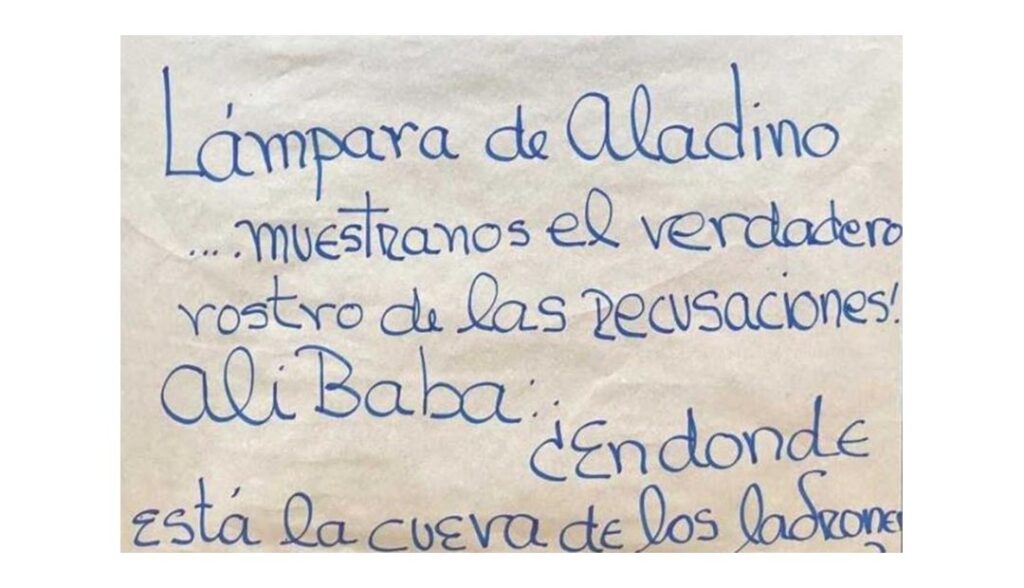 Lámpara de Aladino
....muestranos el verdadero
rostro de las recusaciones!
Ali Baba:.
¿En donde
está la cueva de los ladrones